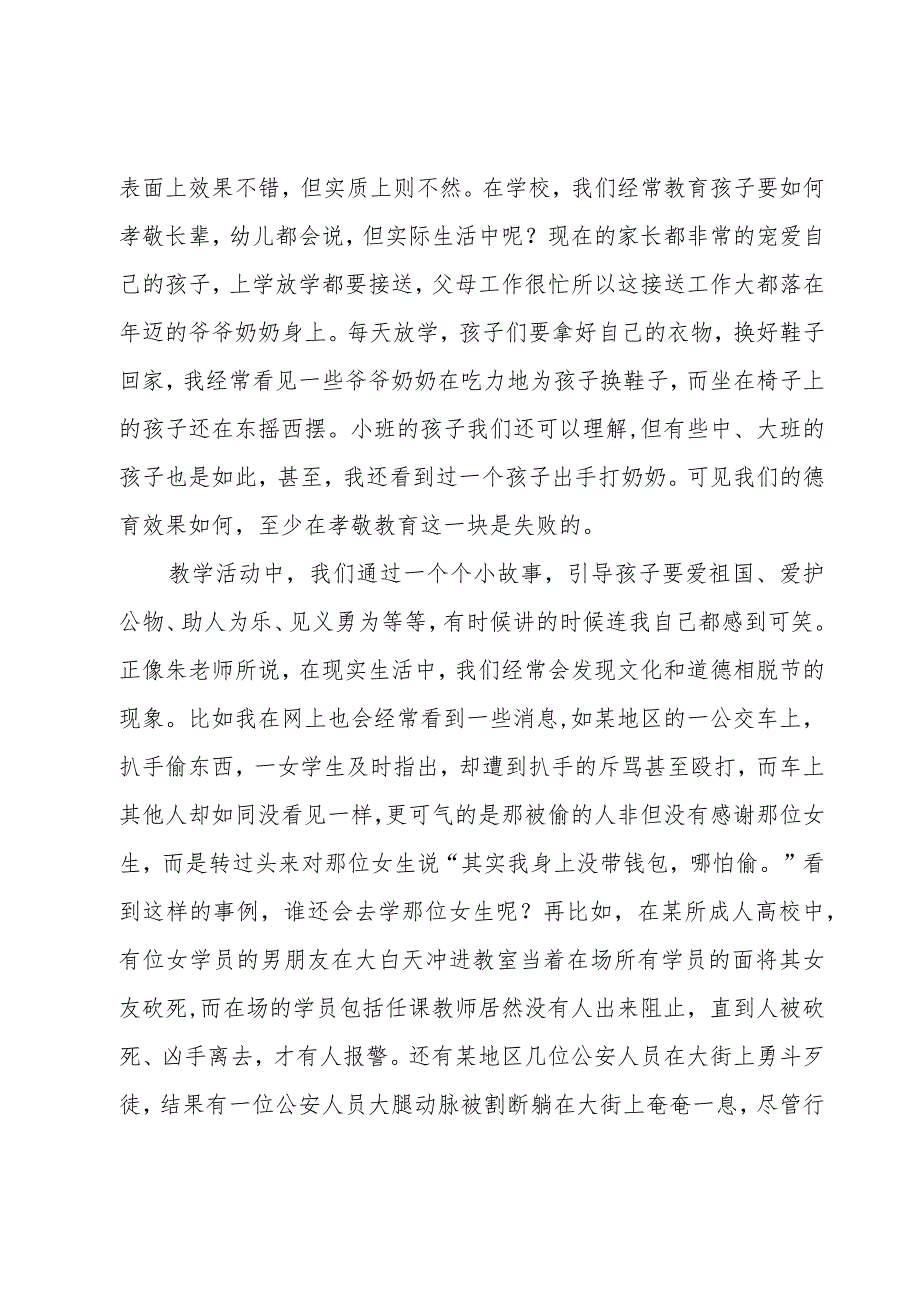 表面上效果不错，但实质上则不然。在学校，我们经常教育孩子要如何
孝敬长辈，幼儿都会说，但实际生活中呢？现在的家长都非常的宠爱自
己的孩子，上学放学都要接送，父母工作很忙所以这接送工作大都落在
年迈的爷爷奶奶身上。每天放学，孩子们要拿好自己的衣物，换好鞋子
回家，我经常看见一些爷爷奶奶在吃力地为孩子换鞋子，而坐在椅子上
的孩子还在东摇西摆。小班的孩子我们还可以理解,但有些中、大班的
孩子也是如此，甚至，我还看到过一个孩子出手打奶奶。可见我们的德
育效果如何，至少在孝敬教育这一块是失败的。
教学活动中，我们通过一个个小故事，引导孩子要爱祖国、爱护
公物、助人为乐、见义勇为等等，有时候讲的时候连我自己都感到可笑。
正像朱老师所说，在现实生活中，我们经常会发现文化和道德相脱节的
现象。比如我在网上也会经常看到一些消息,如某地区的一公交车上，
扒手偷东西，一女学生及时指出，却遭到扒手的斥骂甚至殴打，而车上
其他人却如同没看见一样,更可气的是那被偷的人非但没有感谢那位女
生，而是转过头来对那位女生说“其实我身上没带钱包，哪怕偷。”看
到这样的事例，谁还会去学那位女生呢？再比如，在某所成人高校中，
有位女学员的男朋友在大白天冲进教室当着在场所有学员的面将其女
友砍死,而在场的学员包括任课教师居然没有人出来阻止，直到人被砍
死、凶手离去，才有人报警。还有某地区几位公安人员在大街上勇斗歹
徒，结果有一位公安人员大腿动脉被割断躺在大街上奄奄一息，尽管行